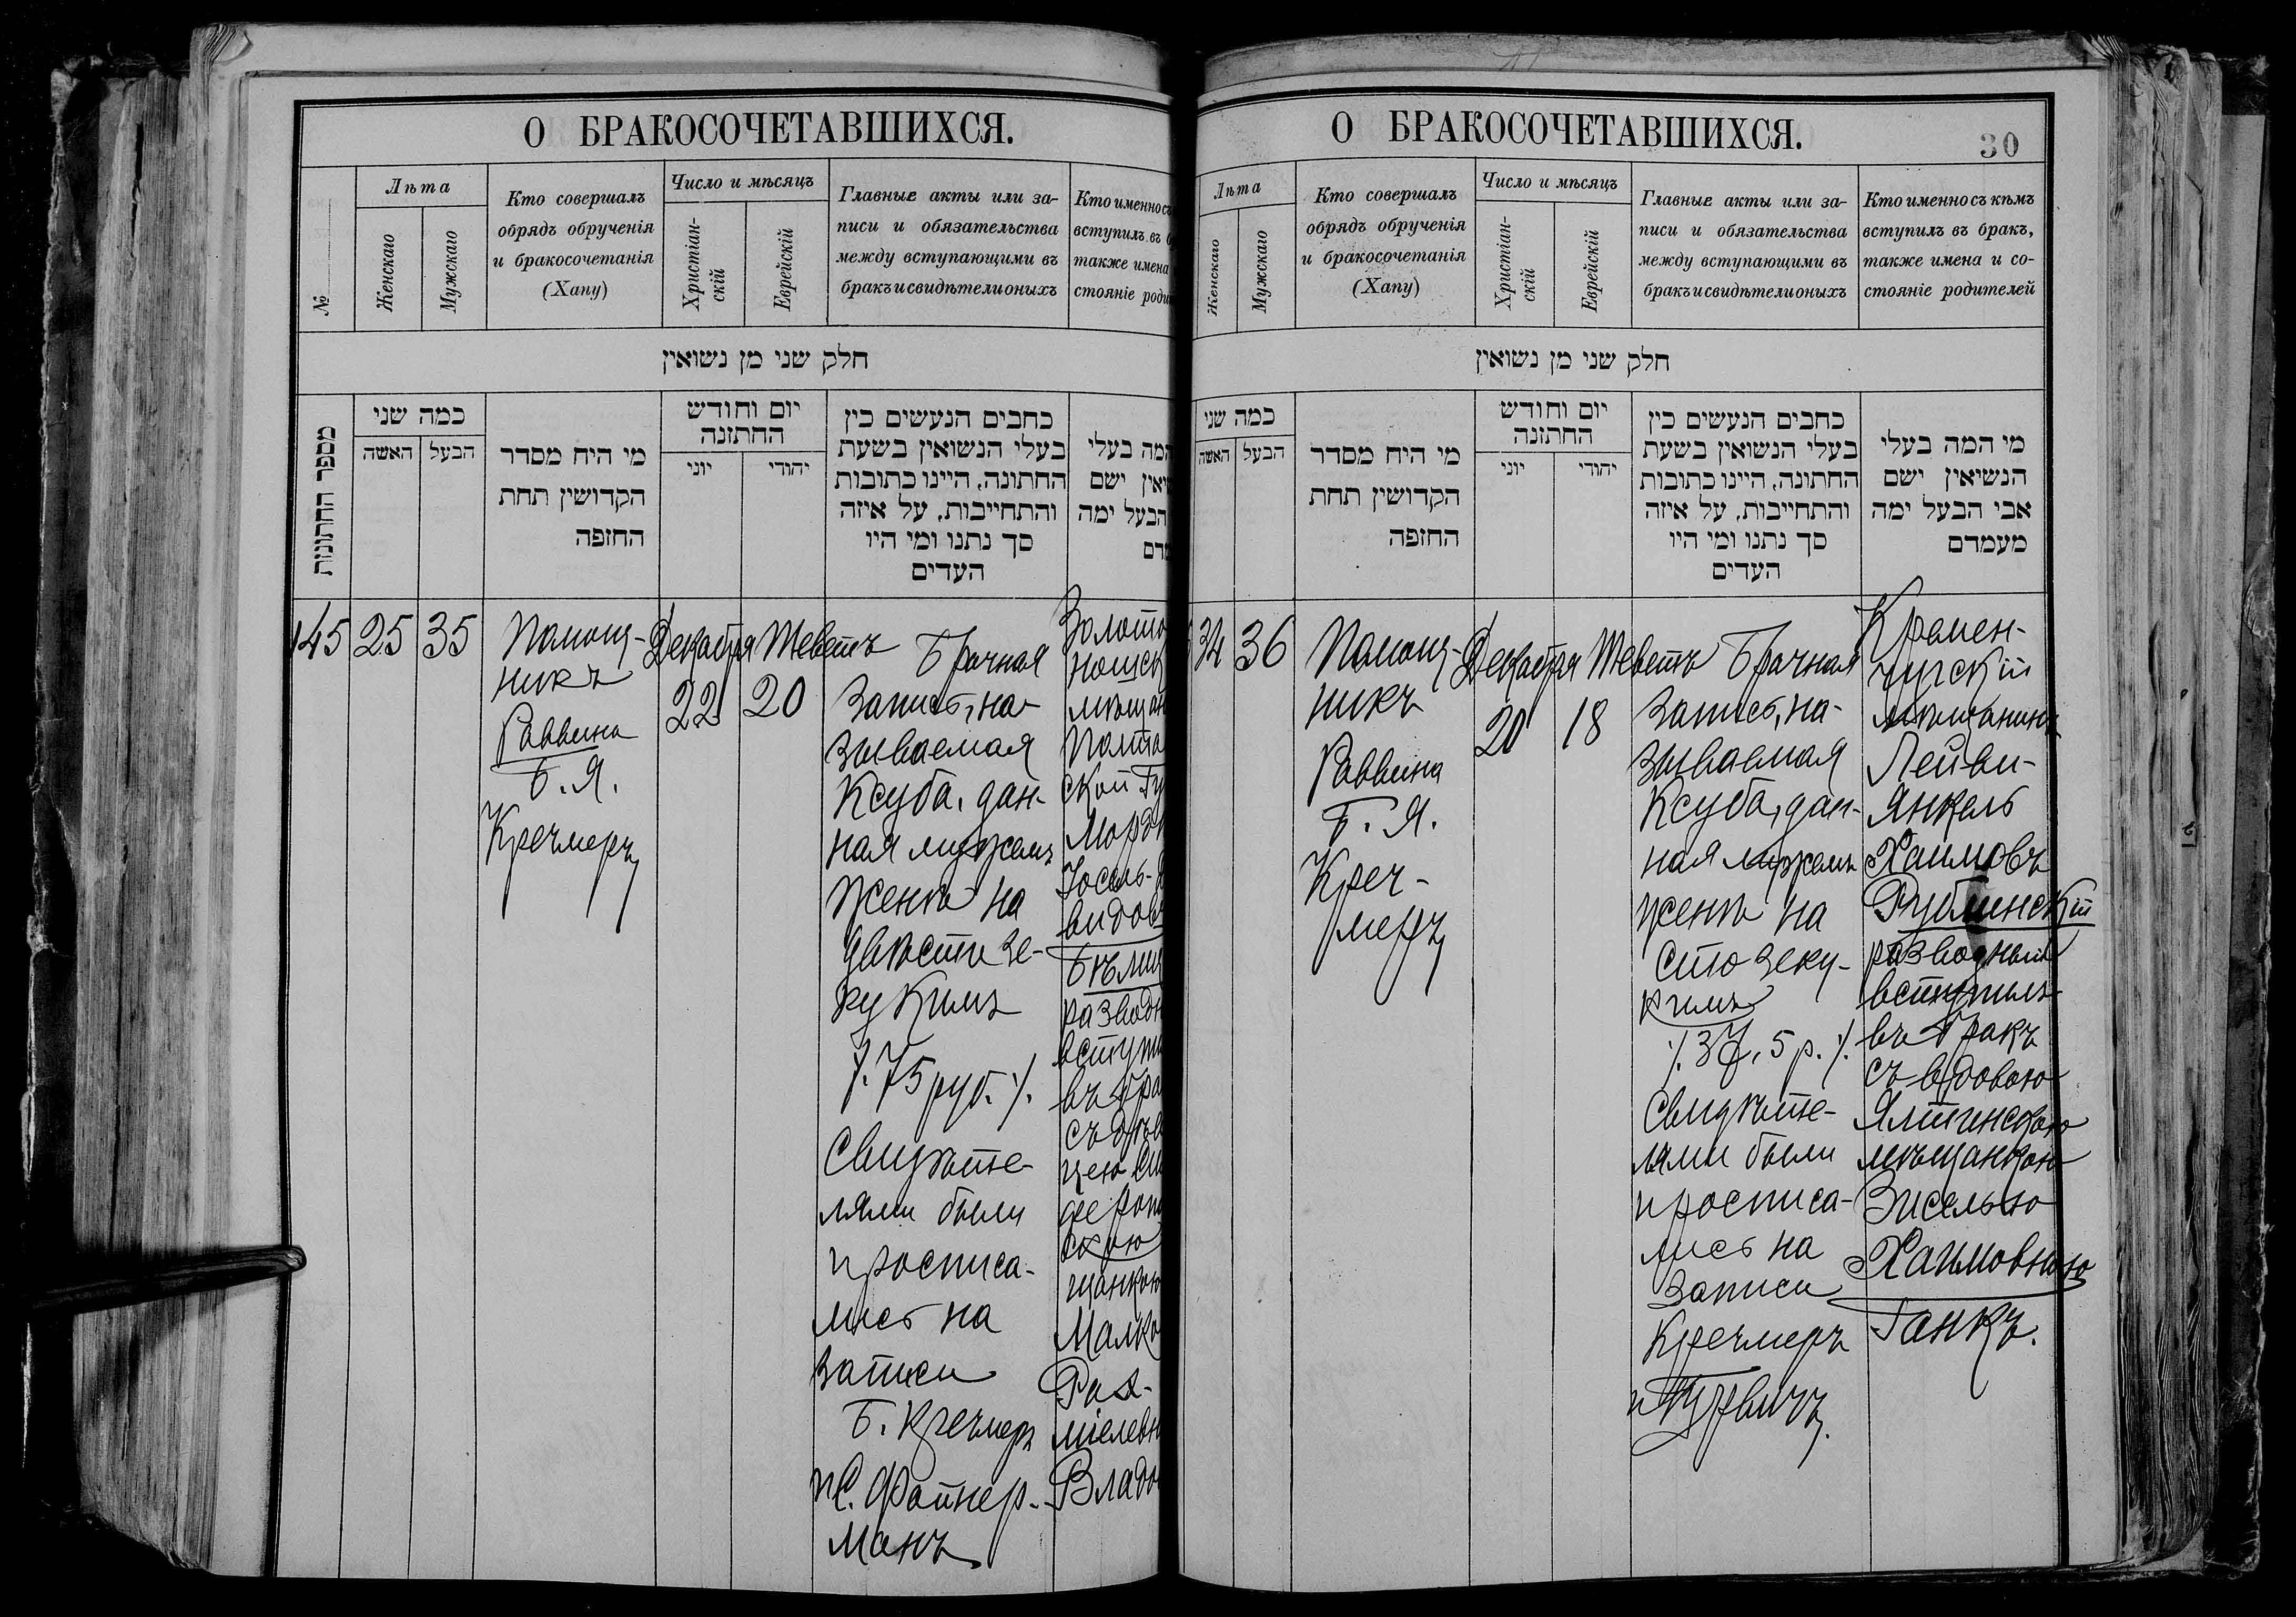 О БРАКОСОЧЕТАВШИХСЯ.
№
Лѣта
Женскаго
Мужскаго
Кто совершалъ
обрядъ обрученія
и бракосочетанія
(Хапу)
Число и мѣсяцъ
Христіан-
скій
Еврейскій
Главные акты или за-
писи и обязательства
между вступающими въ
бракъ и свидѣтели оныхъ
Кто именно съ
вступилъ въ
также имена
стояніе
חלק שני מן נשואין
מספר החתונות
כמה שני
האשה
הבעל
מי היח מסדר
הקדושין תחת
החופה
יום וחודש
החתונה
יוני
יהודי
כחבים הנעשים כין
בעלי הנשואין בשעת
החתונה, היינו כתובות
והתחייבות, על איזה
סך נתנו ומי היו
העדים
המה בעלי
ישם
הבעל ימה
145
25
35
Помощ-
никъ
Раввина
Б. Я.
Кречмеръ
Декабря
22
Теветъ
20
Брачная
запись, на-
зываемая
Ксуба, дан-
ная мужемъ
женѣ на
двѣсти зе-
кукимъ
/. 75 руб. /.
Свидѣте-
лями были
и росписа-
лись на
записи
Б. Кречмеръ
и С. Файнер-
манъ
Золото
ношск
мѣщан
Полта
ской Гу
Мордк
Іосель-
видовъ
развод
вступи
въ бра
съ дѣв
цею Си
фероп
скою
щанкою
Малко
Рах-
міелевн
Владо
О БРАКОСОЧЕТАВШИХСЯ.
30
Лѣта
Женскаго
Мужскаго
Кто совершалъ
обрядъ обрученія
и бракосочетанія
(Хапу)
Число и мѣсяцъ
Христіан-
скій
Еврейскій
Главные акты или за-
писи и обязательства
между вступающими въ
бракъ и свидѣтели оныхъ
Кто именно съ кѣмъ
вступилъ въ бракъ,
также имена и со-
стояніе родителей
חלק שני מן נשואין
כמה שני
האשה
הבעל
מי היח מסדר
הקדושין תחת
החופה
יום וחודש
החתונה
יוני
יהודי
כחבים הנעשים כין
בעלי הנשואין בשעת
החתונה, היינו כתובות
והתחייבות, על איזה
סך נתנו ומי היו
העדים
מי המה בעלי
הנשיאין ישם
אבי הבעל ימה
מעמדם
34
36
Помощ-
никъ
Раввина
Б. Я.
Креч-
меръ
Декабря
20
Теветъ
18
Брачная
запись, на-
зываемая
Ксуба, дан-
ная мужемъ
женѣ на
сто зеку-
кимъ
/. 37, 5 р. /.
Свидѣте-
лями были
и росписа-
лись на
записи
Кречмеръ
и Гурвичъ.
Кремен-
чугскій
мѣщанинъ
Лейви-
Янкель
Хаимовъ
Рублинскій
разводный
вступилъ
въ бракъ
съ вдовою
Ялтинскою
мѣщанкою
Зиселью
Хаимовною
Ганкъ.